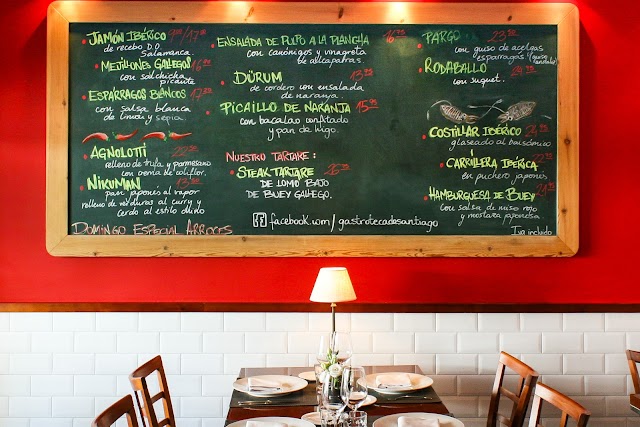 JAMÓN IBÉRICO
de recebo D.O.
Salamanca.
MEJILLONES GALLEGOS
con salchicha
picante
ESPÁRRAGOS BLANCOS
con salsa blanca
de limón y sepia
AGNOLOTTI
relleno de trufa y parmesano
con crema de coliflor.
NIKUMAN
pan japonés al vapor
relleno de verduras al curry y
cerdo al estilo chino
DOMINGO ESPECIAL ARROCES
ENSALADA DE PULPO A LA PLANCHA
con canónigos y vinagreta
de alcaparras.
DÜRUM
de cordero con ensalada
de naranja.
PICAILLO DE NARANJA 15.95
con bacalao confitado
y pan de higo.
NUESTRO TARTARE:
STEAK-TARTARE
DE LOMO BAJO
DE BUEY GALLEGO.
facebook.com/gastrotecadesantiago
PARGO
con guiso de acelgas
RODABALLO
con suquet.
COSTILLAR IBÉRICO
glaseado al
CARRILLERA IBÉRICA
en puchero japonés
HAMBURGUESA DE BUEY
con salsa de miso rojo
y mostaza japonesa.
Iva incluido